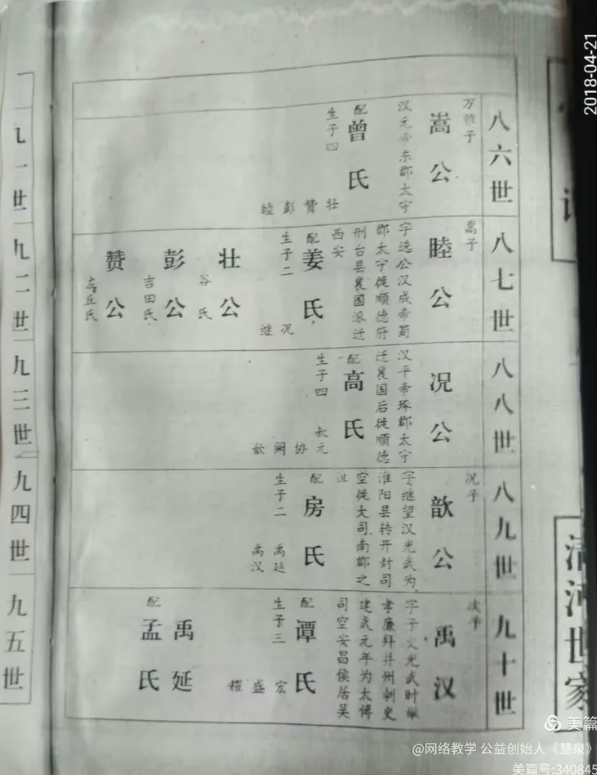 2018-04-21
八六世
嵩公
万雅子
汉元帝东郡太守
配
曾氏
生子四
壮赞彭睦
八七世
睦公
嵩子
字选公汉成帝蜀
郡太守徙顺德府
刑台县襄国派迁
西安
配
姜氏
生子二
况继
壮公
谷氏
彭公
吉田氏
赞公
丘氏
八八世
况公
汉平帝琢郡太守
迁襄国后徙顺德
配
高氏
生子四
元协阑歆
八九世
歆公
况子
字继望汉光武为
淮阳县转开封司
空徙大司南郡之
祖
配
房氏
生子二
禹延
禹汉
九十世
禹汉
歆子
字子文光武时举
孝廉拜并州刺史
建武元年为太傅
司空安昌侯居吴
配
谭氏
生子三
宏盛耀
禹延
配
孟氏
九一世
九二世
九三世
九四世
九五世
清河世家
美篇
@网络教学 公益创始人《慧泉》
美篇号:340845